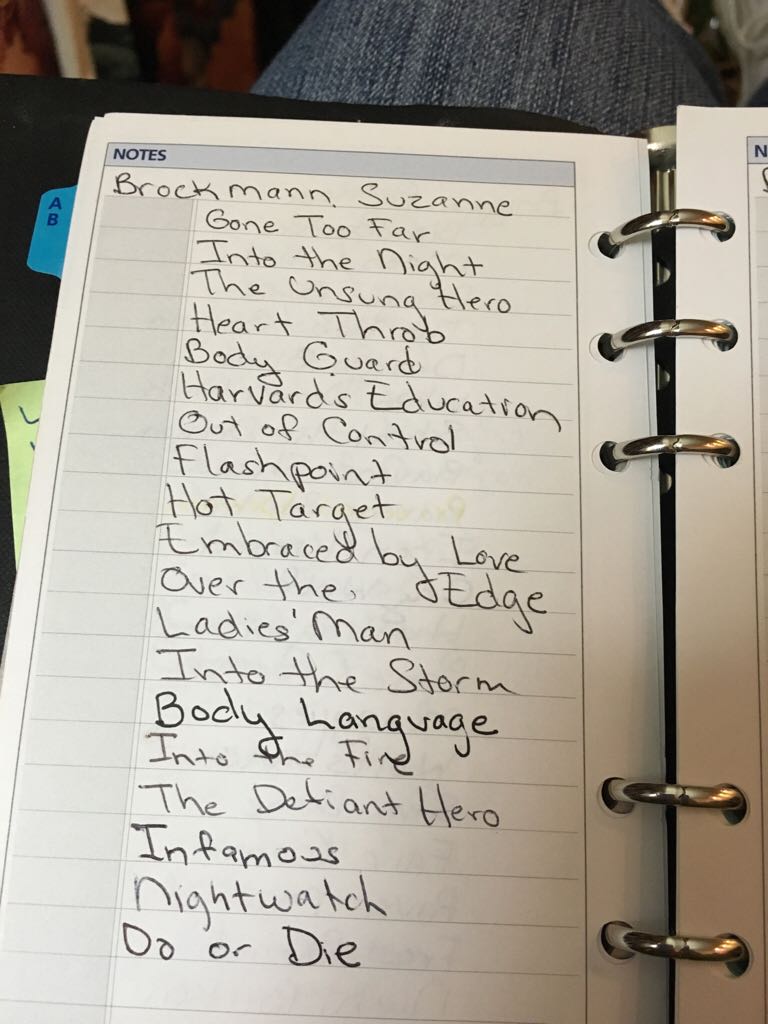 NOTES
Brockmann, Suzanne
Gone Too Far
Into the Night
The Unsung Hero
Heart Throb
Body Guard
Harvards Education
Out of Control
Flashpoint
Hot Target
Embraced by Love
Over the Edge
Ladies' Man
Into the Storm
Body Language
Into the Fire
The Defiant Hero
Infamous
Nightwatch
Do or Die
A
B
N